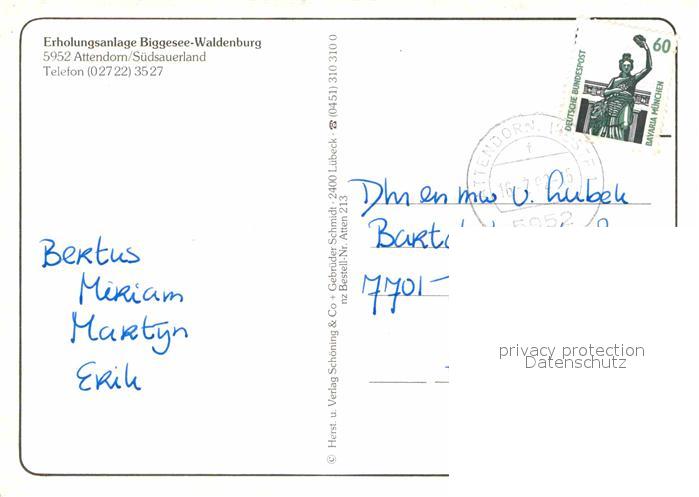 Erholungsanlage Biggesee-Waldenburg
5952 Attendorn/Südsauerland
Telefon (02722) 3527
Bertus
Miriam
Martyn
Erik
© Herst. u. Verlag Schöning & Co + Gebrüder Schmidt · 2400 Lübeck · ☎ (0451) 310 310 0
nz Bestell-Nr. Atten 213
DEUTSCHE BUNDESPOST
60
BAVARIA MÜNCHEN
ATTENDORN,
f
5952
Dhr en mw v. Lubek
7701-
privacy protection
Datenschutz